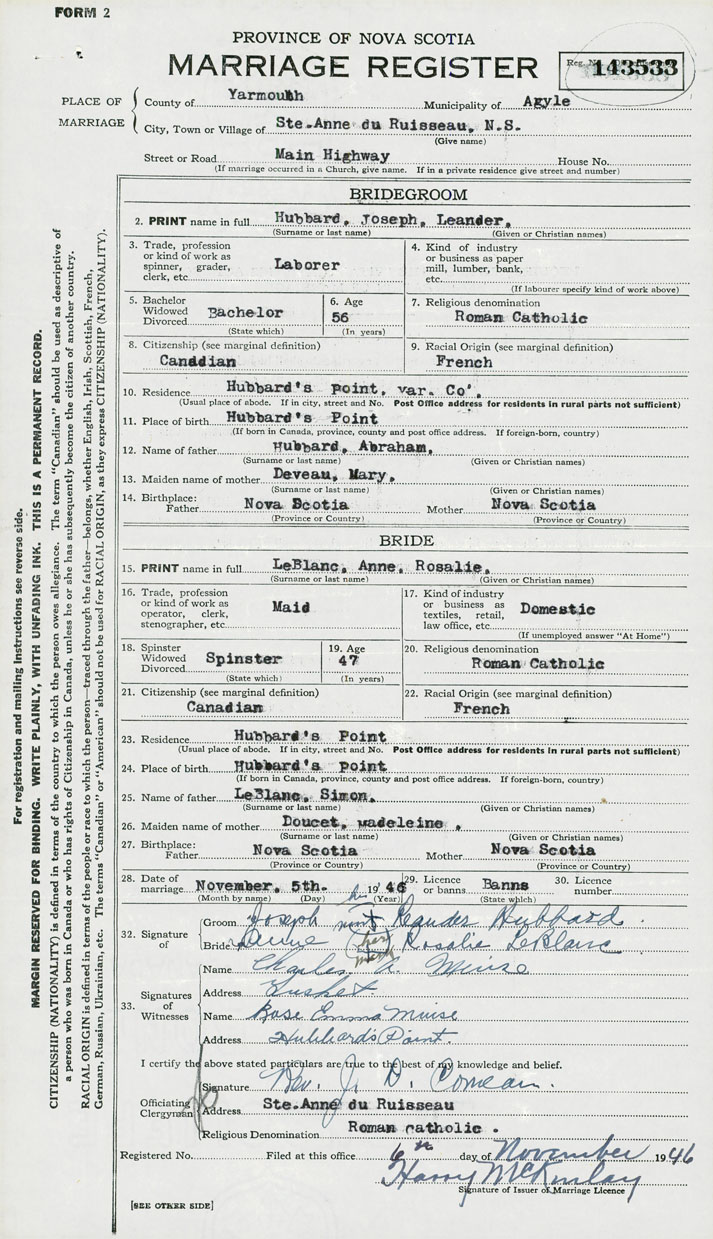 FORM 2
PROVINCE OF NOVA SCOTIA
MARRIAGE REGISTER
Reg. N 143533
PLACE OF MARRIAGE
County of Yarmouth Municipality of Agyle
City, Town or Village of Ste.Anne du Ruisseau, N.S.
(Give name)
Street or Road Main Highway House No.
(If marriage occurred in a Church, give name. If in a private residence give street and number)
BRIDEGROOM
2. PRINT name in full Hubbard, Joseph, Leander,
(Surname or last name) (Given or Christian names)
3. Trade, profession or kind of work as spinner, grader, clerk, etc. Laborer
4. Kind of industry or business as paper mill, lumber, bank, etc.
(If labourer specify kind of work above)
5. Bachelor Widowed Divorced Bachelor
(State which)
6. Age 56
(In years)
7. Religious denomination
Roman Catholic
8. Citizenship (see marginal definition)
Canddian
9. Racial Origin (see marginal definition)
French
10. Residence Hubbard's point, var. Co'.
(Usual place of abode. If in city, street and No. Post Office address for residents in rural parts not sufficient)
11. Place of birth Hubbard's Point
(If born in Canada, province, county and post office address. If foreign-born, country)
12. Name of father Hubbard, Abraham,
(Surname or last name) (Given or Christian names)
13. Maiden name of mother Deveau, Mary,
(Surname or last name) (Given or Christian names)
14. Birthplace: Father Nova Scotia Mother Nova Scotia
(Province or Country) (Province or Country)
BRIDE
15. PRINT name in full LeBlanc, Anne, Rosalie,
(Surname or last name) (Given or Christian names)
16. Trade, profession or kind of work as operator, clerk, stenographer, etc. Maid
17. Kind of industry or business as textiles, retail, law office, etc. Domestic
(If unemployed answer "At Home")
18. Spinster Widowed Divorced Spinster
(State which)
19. Age 47
(In years)
20. Religious denomination
Roman Catholic
21. Citizenship (see marginal definition)
Canadian
22. Racial Origin (see marginal definition)
French
23. Residence Hubbard's Point
(Usual place of abode. If in city, street and No. Post Office address for residents in rural parts not sufficient)
24. Place of birth Hubbard's point
(If born in Canada, province, county and post office address. If foreign-born, country)
25. Name of father LeBlanc, Simon,
(Surname or last name) (Given or Christian names)
26. Maiden name of mother Doucet, Madeleine .
(Surname or last name) (Given or Christian names)
27. Birthplace: Father Nova Scotia Mother Nova Scotia
(Province or Country) (Province or Country)
28. Date of marriage November, 5th. 1946 29. Licence or banns Banns 30. Licence number
(Month by name) (Day) (Year) (State which)
32. Signature of
Groom Joseph his Leander Hubbard
Bride Anne her mark Rosalie LeBlanc
33. Signatures of Witnesses
Name Charles A. Muise
Address Tusket.
Name Rose Emma Muise
Address Hubbards Point.
I certify the above stated particulars are true to the best of my knowledge and belief.
Officiating Clergyman
Signature Rev. J. D. Comeau.
Address Ste.Anne du Ruisseau
Religious Denomination Roman catholic .
Registered No. Filed at this office 6th day of November 1946
Harry McKinlay
Signature of Issuer of Marriage Licence
[SEE OTHER SIDE]
For registration and mailing instructions see reverse side.
MARGIN RESERVED FOR BINDING. WRITE PLAINLY, WITH UNFADING INK. THIS IS A PERMANENT RECORD.
CITIZENSHIP (NATIONALITY) is defined in terms of the country to which the person owes allegiance. The term "Canadian" should be used as descriptive of
a person who was born in Canada or who has rights of Citizenship in Canada, unless he or she has subsequently become the citizen of another country.
RACIAL ORIGIN is defined in terms of the people or race to which the person—traced through the father—belongs, whether English, Irish, Scottish, French,
German, Russian, Ukrainian, etc. The terms "Canadian" or "American" should not be used for RACIAL ORIGIN, as they express CITIZENSHIP (NATIONALITY).